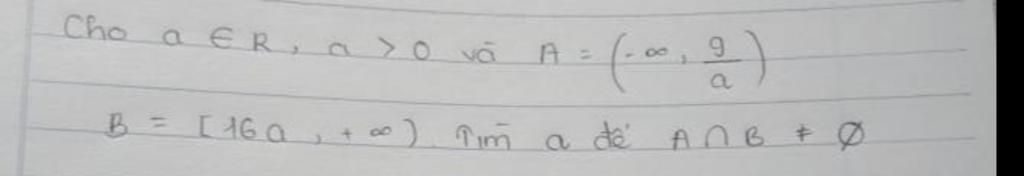 Cho a ∈ R, a > 0 và A = (-∞, 9/a)
B = [16a, +∞) Tìm a để A ∩ B ≠ ∅